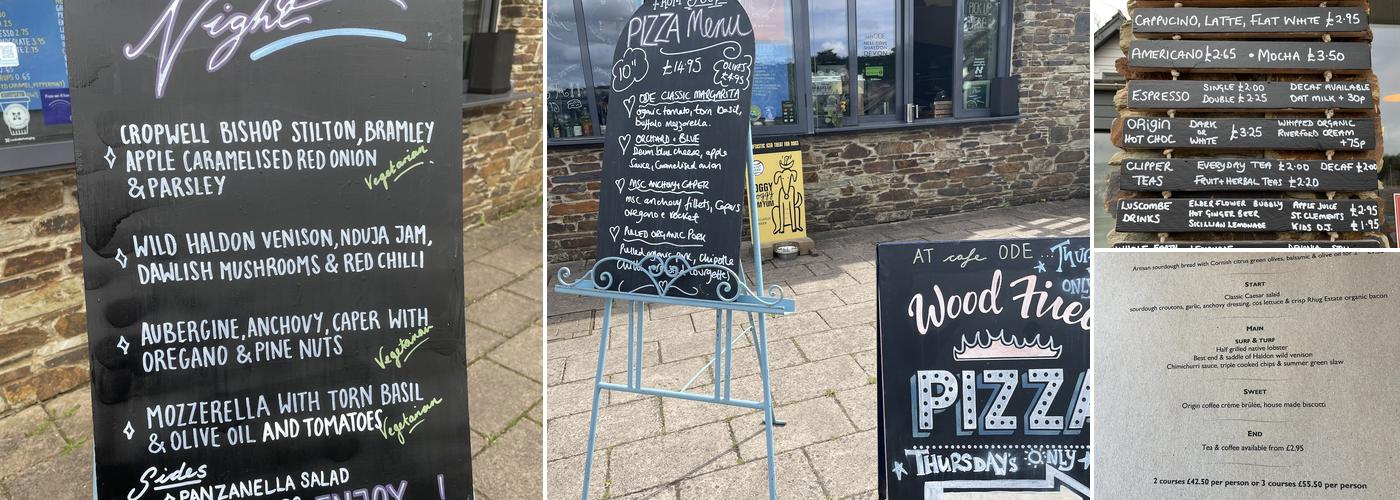 Night
CROPWELL BISHOP STILTON, BRAMLEY
APPLE CARAMELISED RED ONION
& PARSLEY
Vegetarian
WILD HALDON VENISON, NDUJA JAM,
DAWLISH MUSHROOMS & RED CHILLI
AUBERGINE, ANCHOVY, CAPER WITH
OREGANO & PINE NUTS
Vegetarian
MOZZERELLA WITH TORN BASIL
& OLIVE OIL AND TOMATOES
Vegetarian
Sides
PANZANELLA SALAD
ENJOY !
PIZZA Menu
10"
£14.95
OLIVES
£4.95
ODE CLASSIC MARGARITA
organic tomato, torn basil,
buffalo mozzerella.
ORCHARD + BLUE
Devon blue cheese, apple
Sauce, Caramelised onion
MSC ANCHOVY CAPER
msc anchovy fillets, Capers
oregano & rocket
PULLED ORGANIC PORK
Pulled organic pork, Chipotle
courgette)
AT cafe ODE...
ONLY
Wood Fired
PIZZA
THURSDAY'S ONLY
CAPPUCINO, LATTE, FLAT WHITE £2.95
AMERICANO £2.65 • MOCHA £3.50
ESPRESSO SINGLE £2.00 DECAF AVAILABLE
DOUBLE £2.25 OAT MILK + 30p
ORIGIN HOT CHOC DARK OR WHITE £3.25 WHIPPED ORGANIC RIVERFORD CREAM +75p
CLIPPER TEAS EVERYDAY TEA £2.00 DECAF £2.00
FRUIT + HERBAL TEAS £2.20
LUSCOMBE DRINKS ELDERFLOWER BUBBLY APPLE JUICE
HOT GINGER BEER ST. CLEMENTS £2.95
SICILLIAN LEMONADE KIDS O.J. £1.95
Artisan sourdough bread with Cornish citrus green olives, balsamic & olive oil for 2
START
Classic Caesar salad
sourdough croutons, garlic, anchovy dressing, cos lettuce & crisp Rhug Estate organic bacon
MAIN
SURF & TURF
Half grilled native lobster
Best end & saddle of Haldon wild venison
Chimichurri sauce, triple cooked chips & summer green slaw
SWEET
Origin coffee crème brûlée, house made biscotti
END
Tea & coffee available from £2.95
2 courses £42.50 per person or 3 courses £55.50 per person